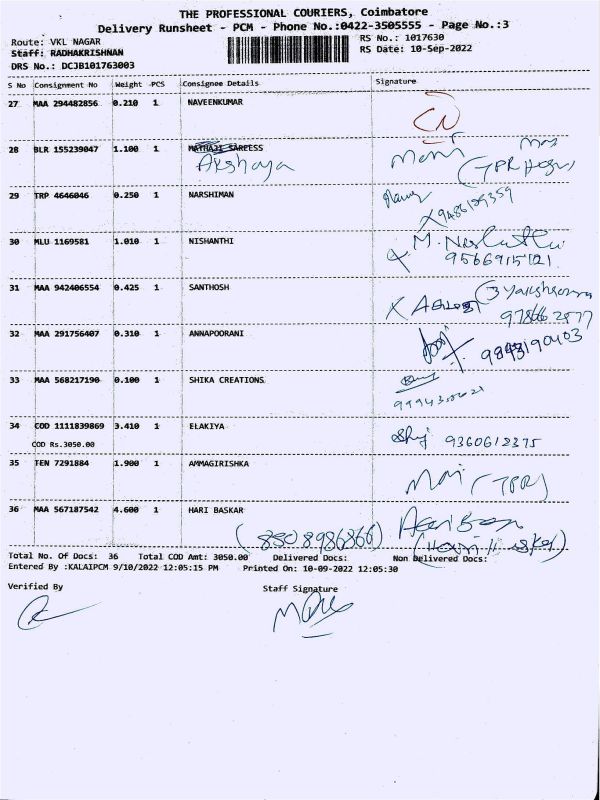 THE PROFESSIONAL COURIERS, Coimbatore
Delivery Runsheet - PCM - Phone No.:0422-3505555 - Page No.:3
Route: VKL NAGAR RS No.: 1017630
Staff: RADHAKRISHNAN RS Date: 10-Sep-2022
DRS No.: DCJB101763003
S No Consignment No Weight PCS Consignee Details Signature
27 MAA 294482856 0.210 1 NAVEENKUMAR
28 BLR 155239047 1.100 1 MATHAJI SAREESS
Akshaya
29 TRP 4646046 0.250 1 NARSHIMAN
30 MLU 1169581 1.010 1 NISHANTHI
9566915121
31 MAA 942406554 0.425 1 SANTHOSH
32 MAA 291756407 0.310 1 ANNAPOORANI
9843190403
33 MAA 568217190 0.100 1 SHIKA CREATIONS
34 COD 1111839869 3.410 1 ELAKIYA
COD Rs.3050.00
9360618375
35 TEN 7291884 1.900 1 AMMAGIRISHKA
(TPR)
36 MAA 567187542 4.600 1 HARI BASKAR
Total No. Of Docs: 36 Total COD Amt: 3050.00 Delivered Docs: Non Delivered Docs:
Entered By :KALAIPCM 9/10/2022 12:05:15 PM Printed On: 10-09-2022 12:05:30
Verified By Staff Signature